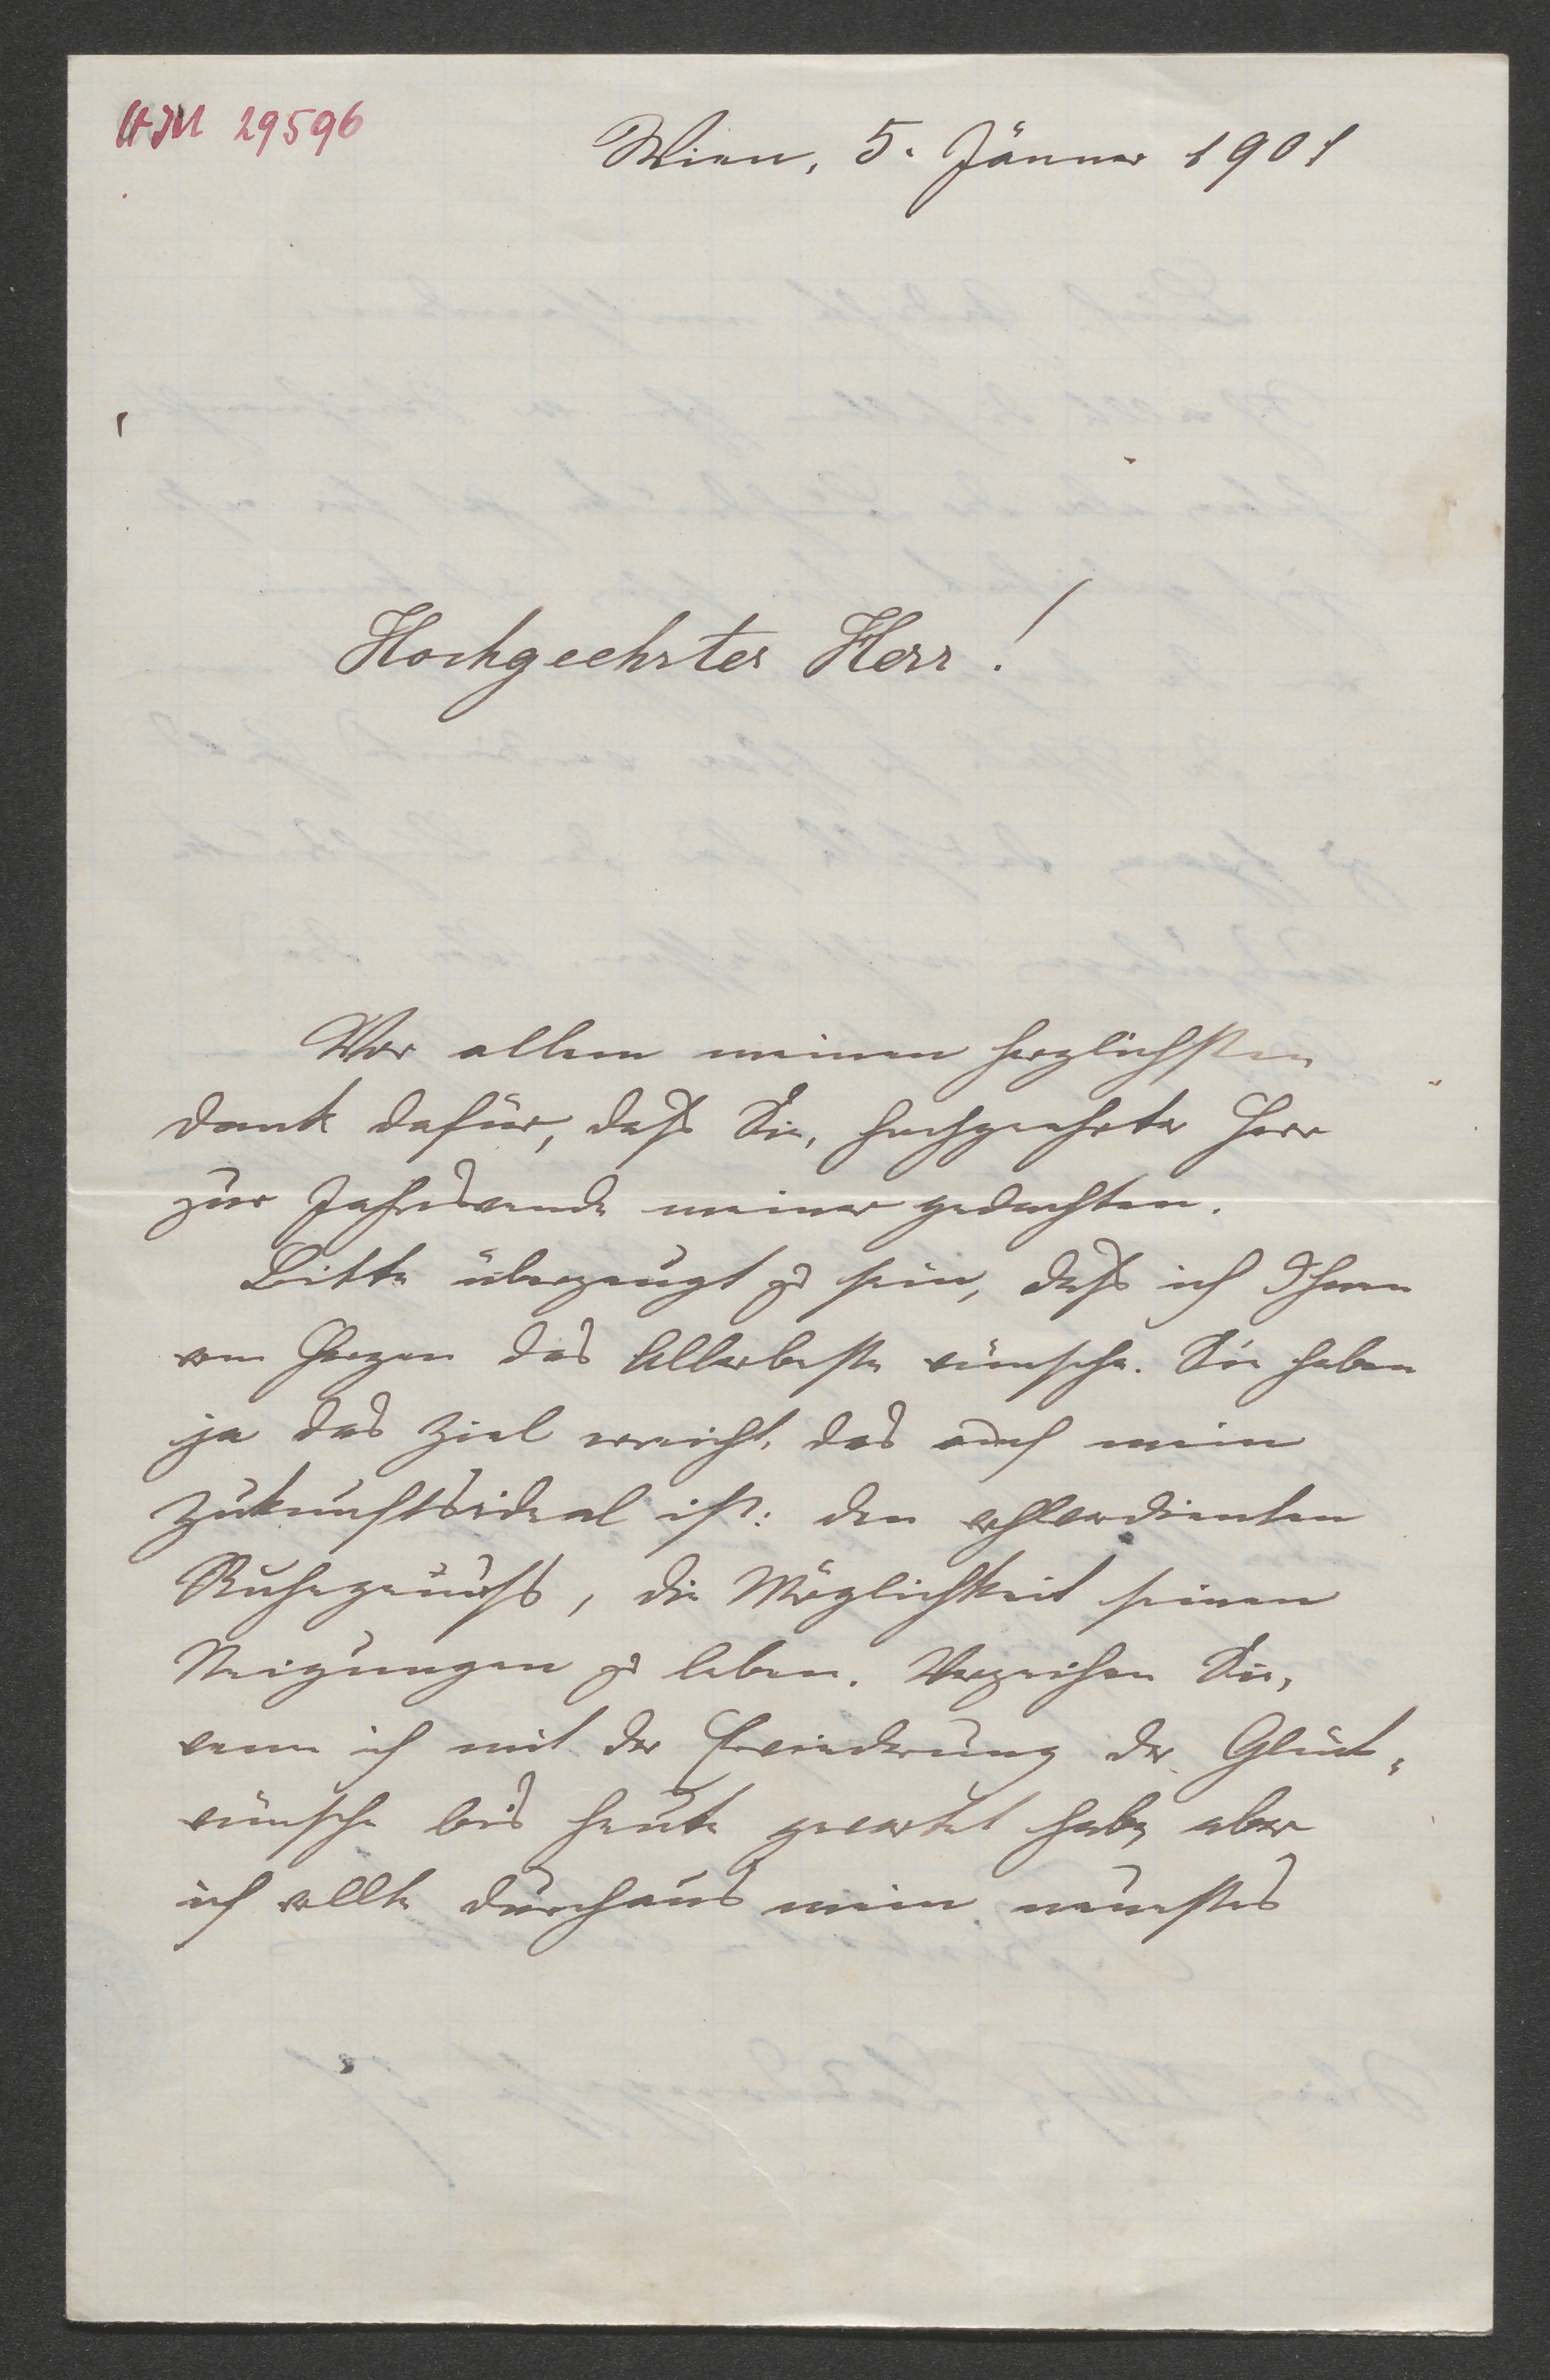 HIN 29596
Wien, 5. Jänner 1901
Hochgeehrter Herr!
Vor allem meinen herzlichsten
Dank dafür, dass Sie, hochgeehrter Herr
zur Jahreswende meiner gedachten.
Bitte überzeugt zu sein, dass ich Ihnen
von Herzen das Allerbeste wünsche. Sie haben
ja das Ziel erreicht, das auch mein
Zukunftsideal ist: den wohlverdienten
Ruhegenuss, die Möglichkeit seinen
Neigungen zu leben. Verzeihen Sie,
wenn ich mit der Erwiederung der Glück-
wünsche bis heute gewartet habe, aber
ich wollte durchaus mein neuestes